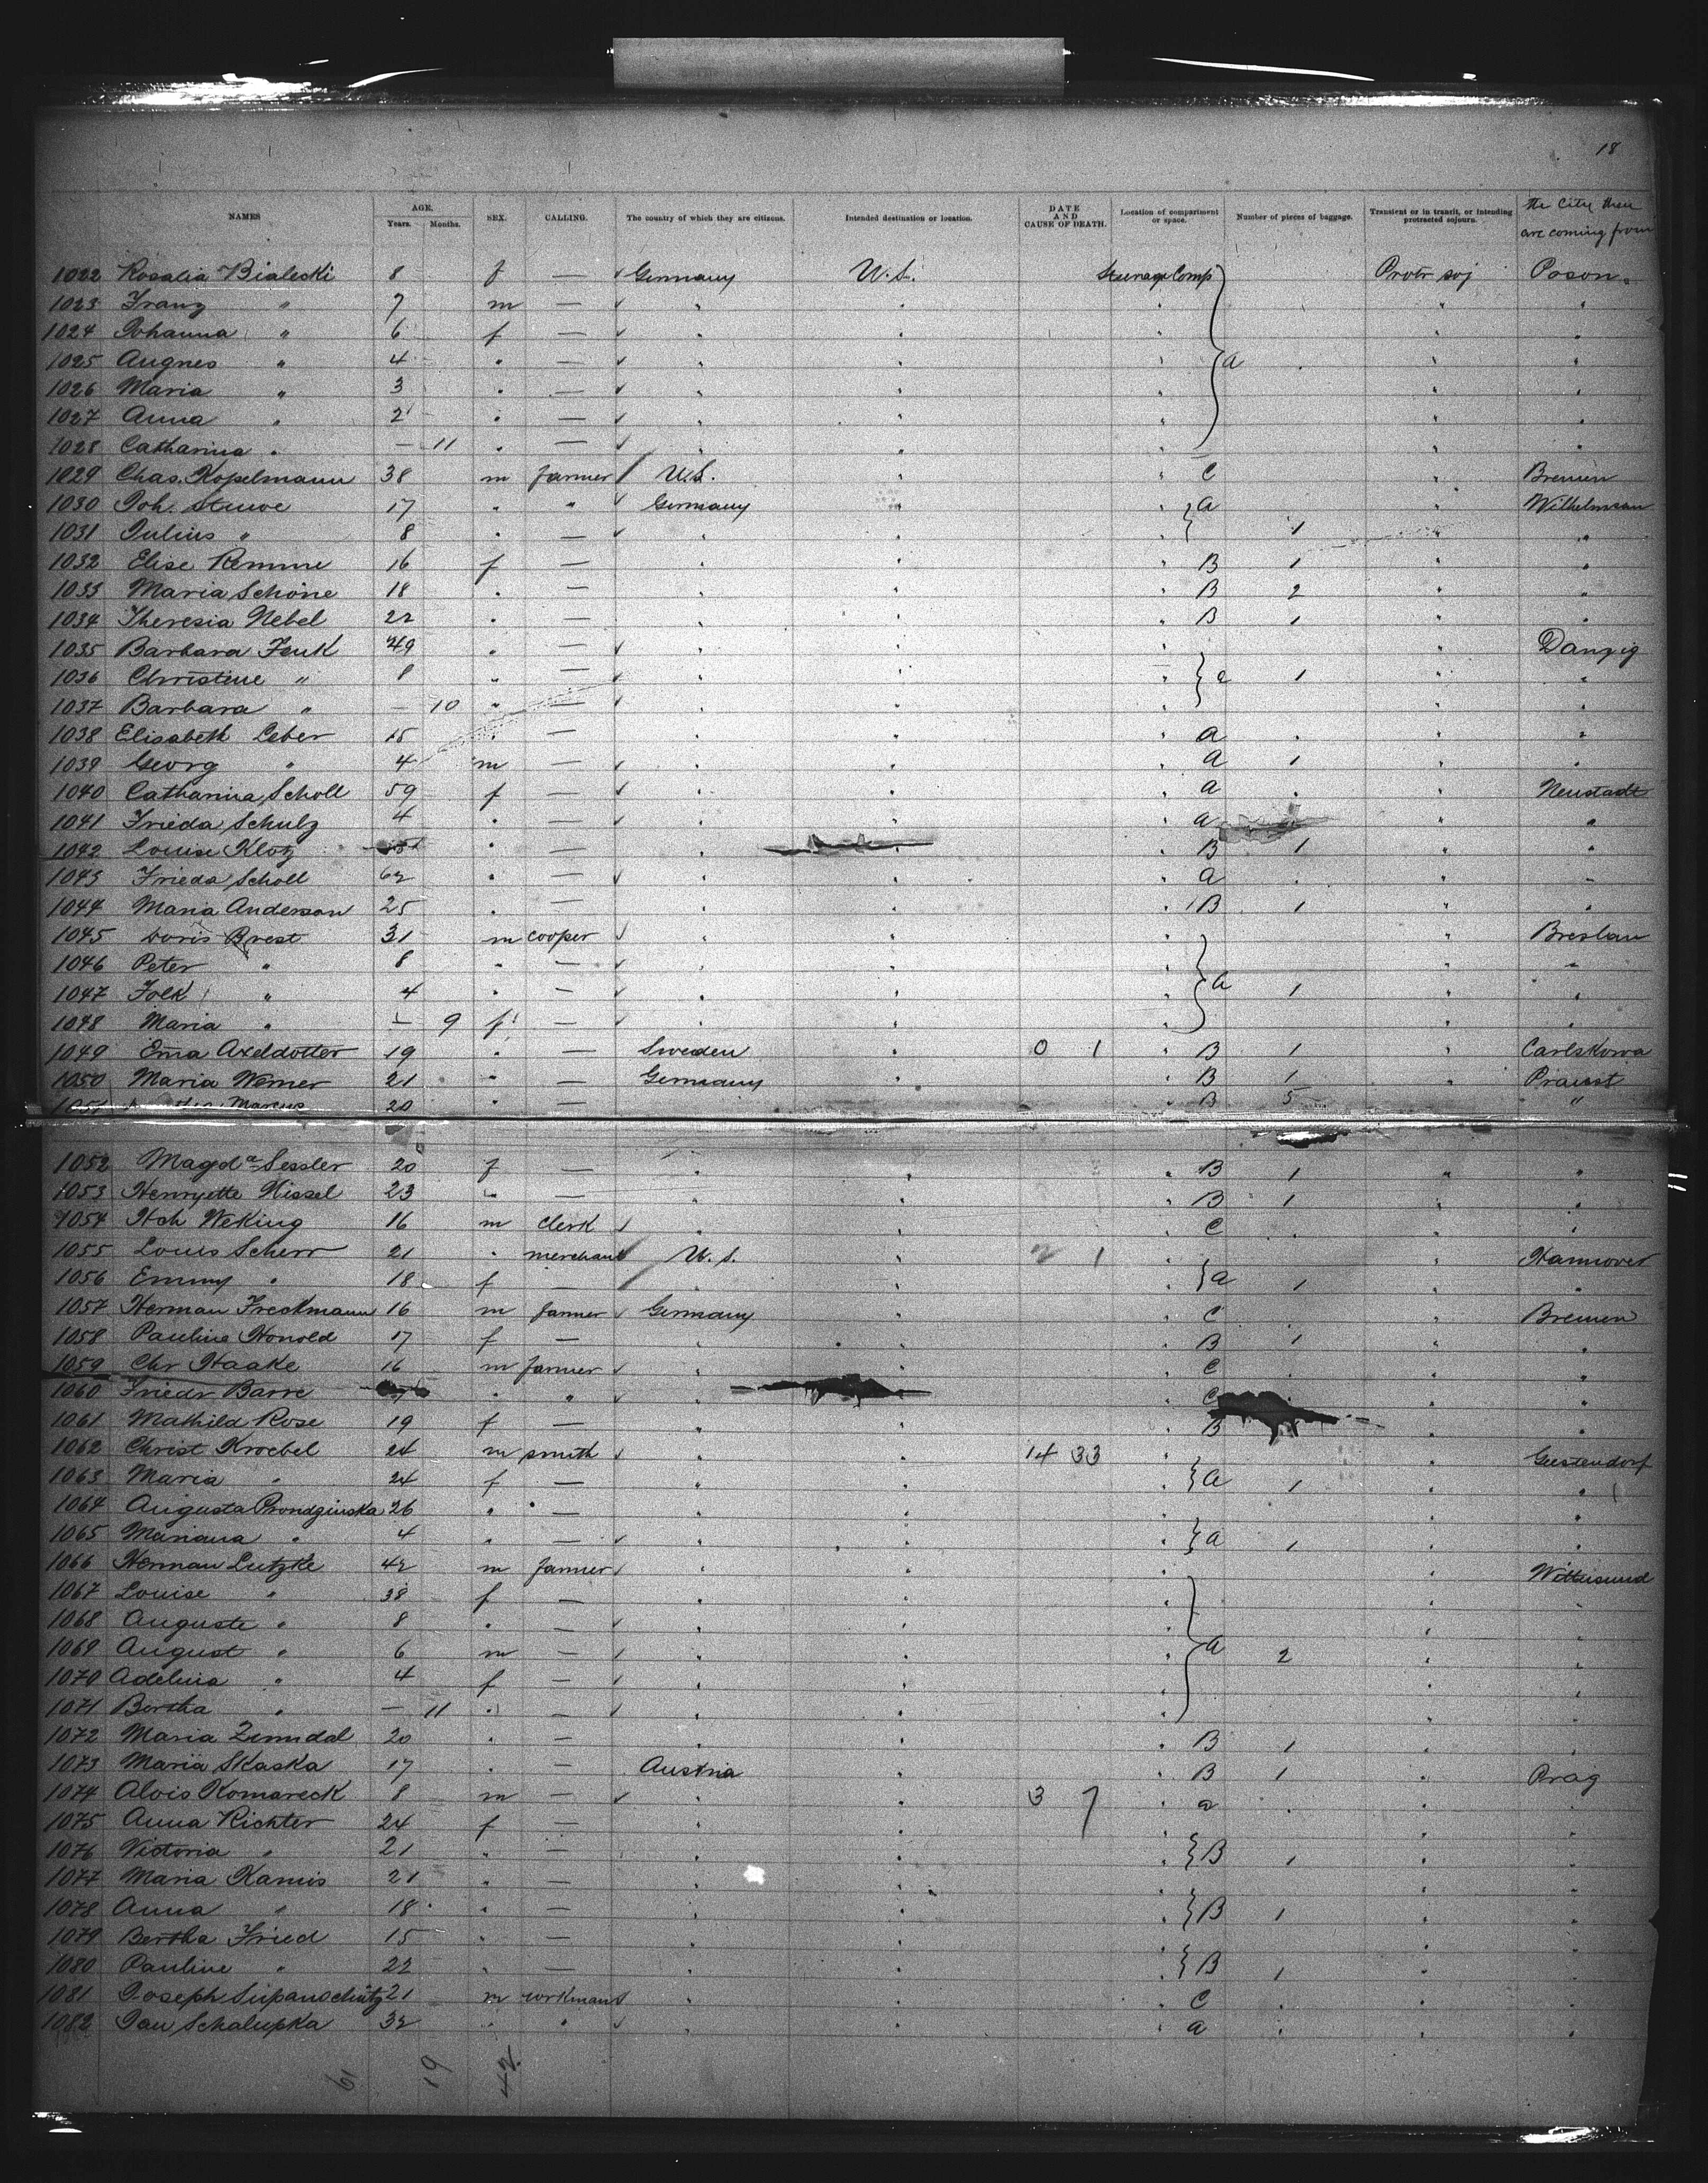 18
NAMES AGE. Years. Months. SEX. CALLING. The country of which they are citizens. Intended destination or location. DATE AND CAUSE OF DEATH. Location of compartment or space. Number of pieces of baggage. Transient or in transit, or intending protracted sojourn. The City they are coming from
1022 Rosalia Bialecki 8 f — Germany U.S. Steerage Comp Protr soj Poson
1023 Franz " 7 m — " " " " "
1024 Johanna " 6 f — " " " " "
1025 Augnes " 4 " — " " " a " "
1026 Maria " 3 " — " " " " "
1027 Anna " 2 " — " " " " "
1028 Catharina " — 11 " — " " " " "
1029 Chas. Kopelmann 38 m farmer U.S. " " C " Bremen
1030 Joh. Stuwe 17 " " Germany " " a "
1031 Julius " 8 " — " " " 1 " "
1032 Elise Remme 16 f — " " " B 1 " "
1033 Maria Schöne 18 " — " " " B 2 " "
1034 Theresia Nebel 22 " — " " " B 1 " "
1035 Barbara Fenk 49 " — " " " " Danzig
1036 Christine " 8 " — " " " a 1 " "
1037 Barbara " — 10 " — " " " " "
1038 Elisabeth 15 " — " " " a " "
1039 Georg " 4 m — " " " a 1 " "
1040 Catharina Scholl 59 f — " " " a " Neustadt
1041 Frieda Schulz 4 " — " " " a " "
1042 Louise Klotz " — " " " B 1 " "
1043 Frieda Scholl 62 " — " " " a " "
1044 Maria Anderson 25 " — " " " B 1 " "
1045 Doris Brest 31 m cooper " " " " Breslau
1046 Peter " 8 " — " " " " "
1047 Folk " 4 " — " " " a 1 " "
1048 Maria " — 9 f — " " " " "
1049 Ema Axeldotter 19 " — Sweden " 0 1 " B 1 " Carlskowa
1050 Maria Werner 21 " — Germany " B 1 " Praust
1051 Marcus 20 " — B 5 "
1052 Magda Sessler 20 f — " " " B 1 " "
1053 Henryette Nissel 23 " — " " " B 1 " "
1054 Weking 16 m clerk " " " C " "
1055 Louis Scherr 21 " merchant U.S. " 2 1 " " Hannover
1056 Emmy " 18 f — " " a 1 "
1057 Herman Freckmann 16 m farmer Germany " " C " Bremen
1058 Pauline Honold 17 f — " " " B 1 " "
1059 Chr Haake 16 m farmer " " " C " "
1060 Friedr Barre " " " " " C " "
1061 Mathild Rose 19 f — " " " B " "
1062 Christ Kroebel 24 m smith " " 14 33 " " Geestendorf
1063 Maria " 24 f — " " " a 1 " "
1064 Augusta Prondzinska 26 " — " " " " "
1065 Mariana " 4 " — " " " a 1 " "
1066 Herman Lutzke 42 m farmer " " " "
1067 Louise " 38 f — " " " " "
1068 Auguste " 8 " — " " " " "
1069 August " 6 m — " " " a 2 " "
1070 Adelina " 4 f — " " " " "
1071 Bertha " — 11 " — " " " " "
1072 Maria Zimdal 20 " — " " " B 1 " "
1073 Maria Skaska 17 " — Austria " " B 1 " Prag
1074 Alois Komareck 8 m — " " 3 7 " a " "
1075 Anna Richter 24 f — " " " " "
1076 Victoria " 21 " — " " " B 1 " "
1077 Maria Kamis 21 " — " " " " "
1078 Anna " 18 " — " " " B 1 " "
1079 Bertha Fried 15 " — " " " " "
1080 Pauline " 22 " — " " " B 1 " "
1081 Joseph 21 m workman " " " C " "
1082 Jan Schalupka 32 " " " " " a " "
61 19 42